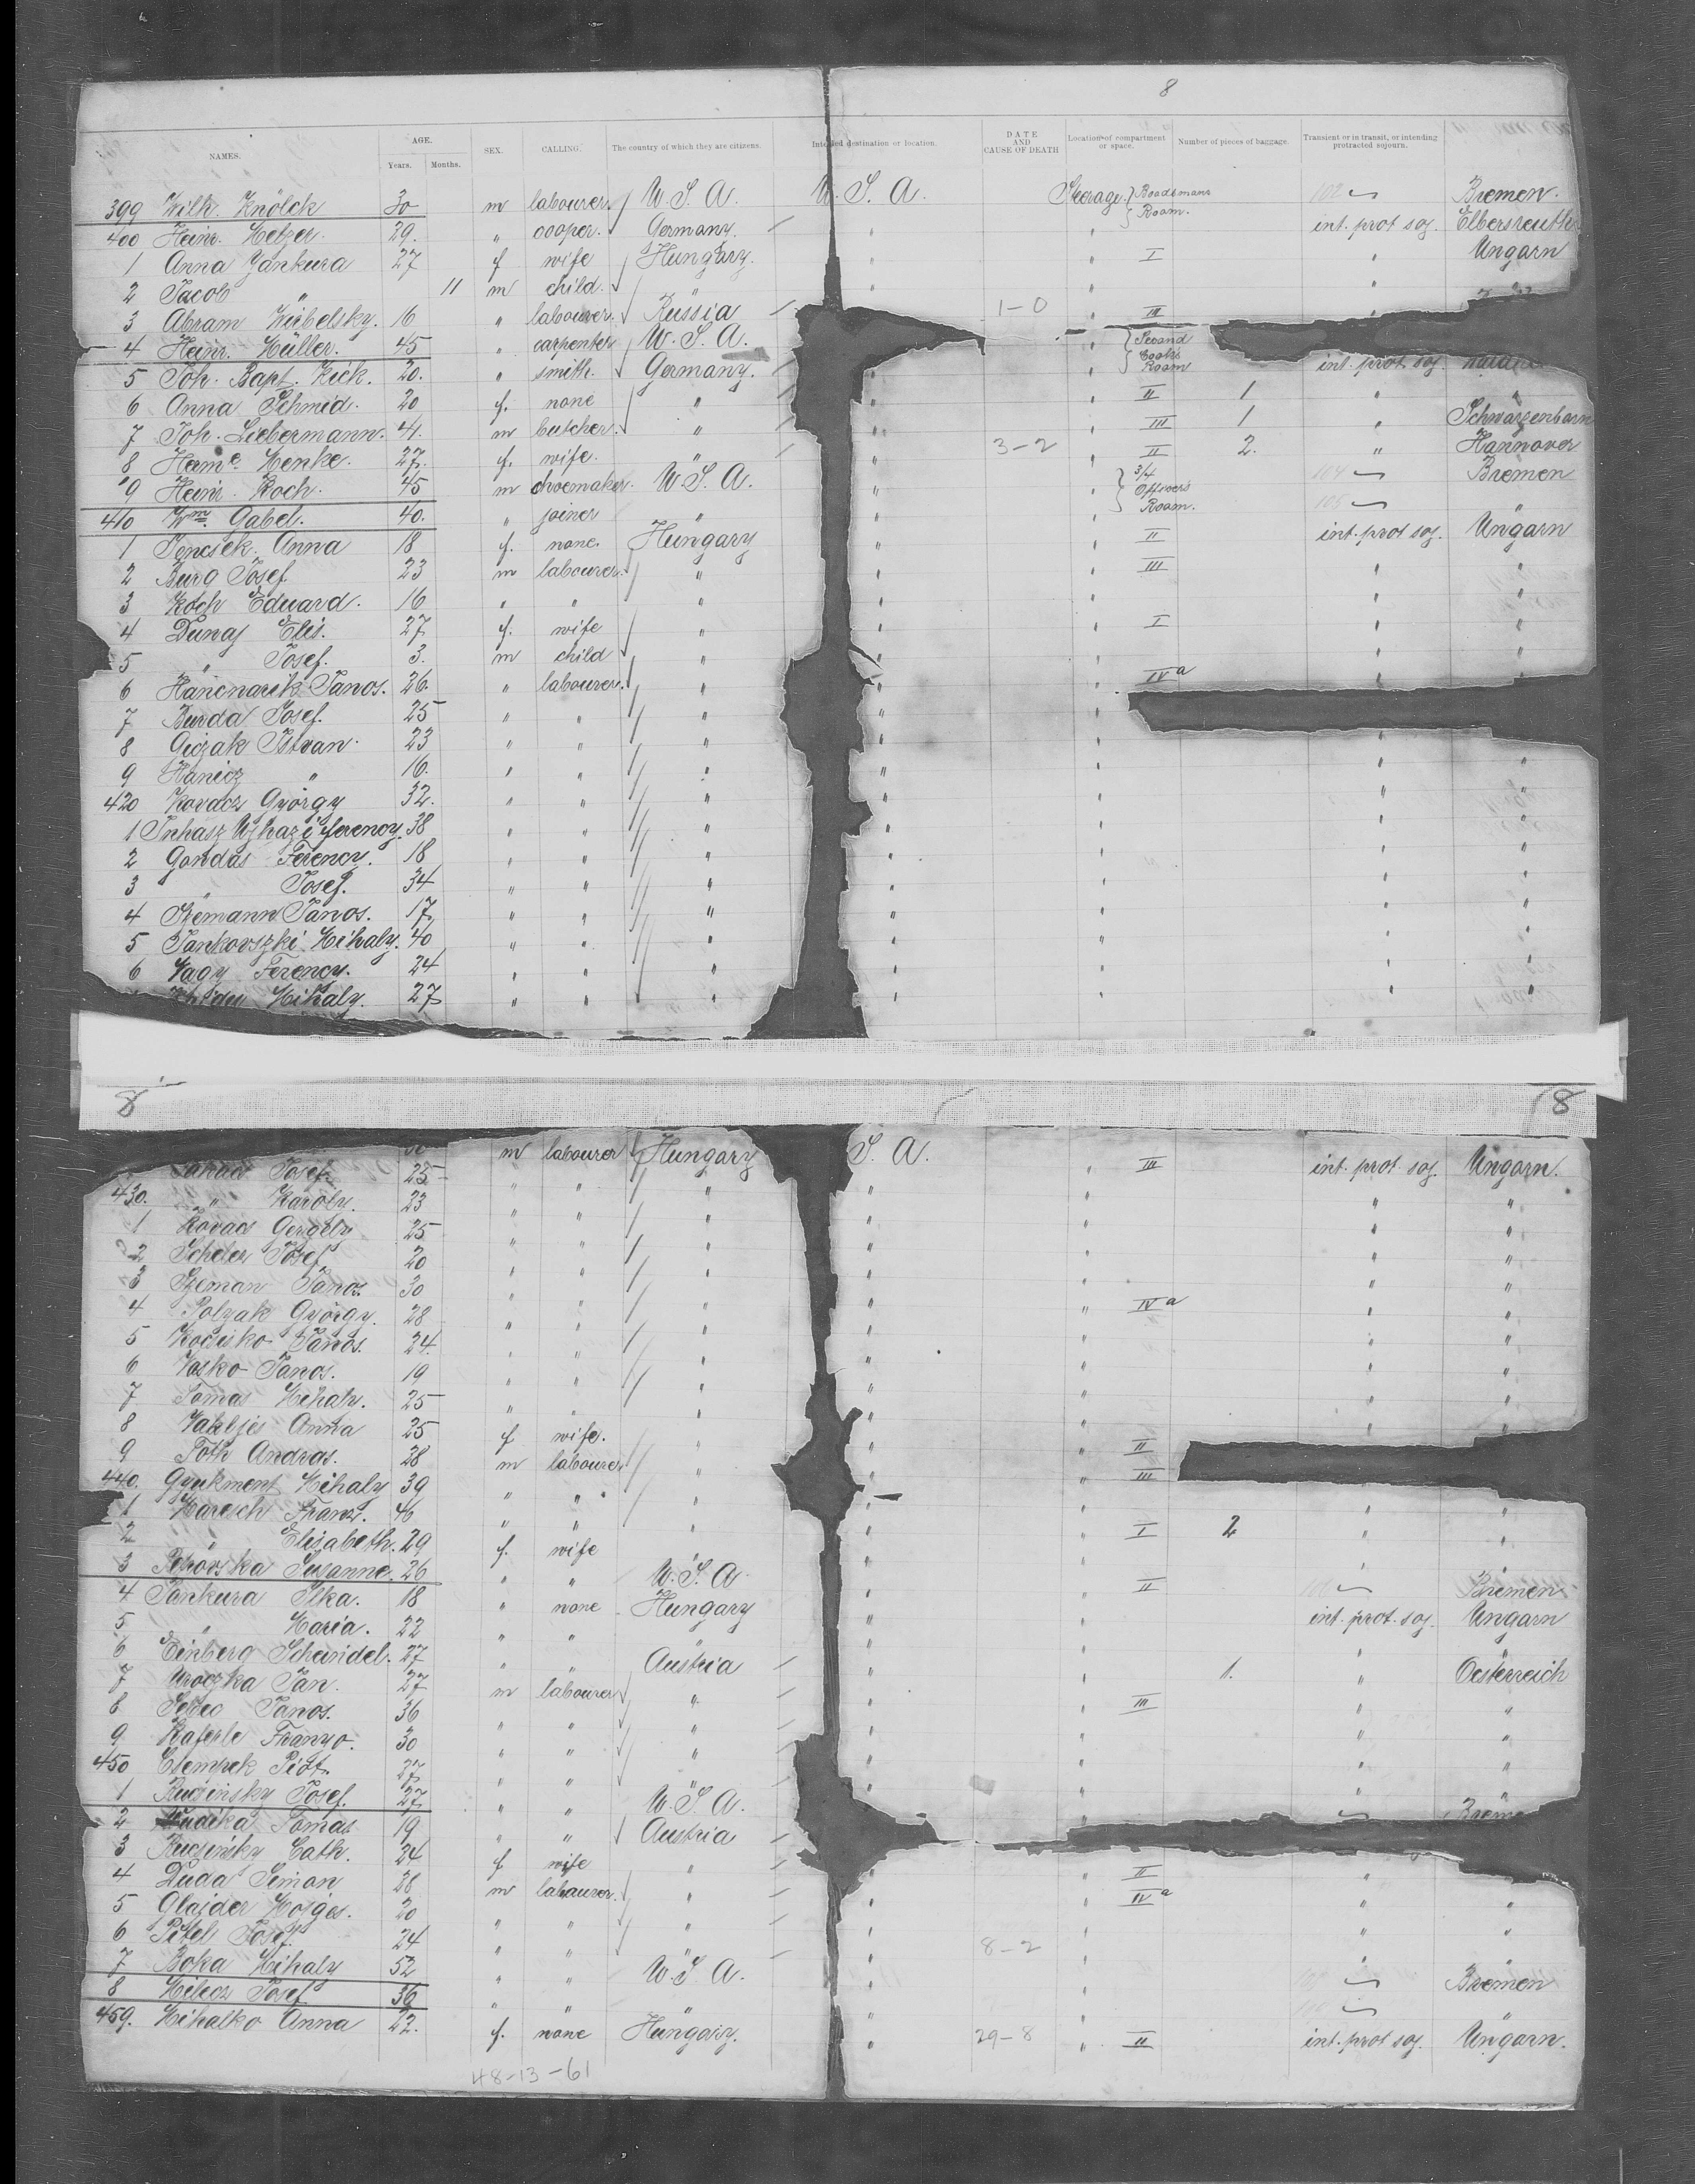 8
NAMES. AGE. Years. Months. SEX. CALLING. The country of which they are citizens. Intended destination or location. DATE AND CAUSE OF DEATH Location of compartment or space. Number of pieces of baggage. Transient or in transit, or intending protracted sojourn.
399 Wilh. Knölck 30 m labourer. U. S. A. U. S. A. Steerage. Boadsmans Room. 102 Bremen.
400 Heinr. Metzer. 29. " cooper. Germany. " " int. prot soj. Elbersreuth
1 Anna Yankura 27 f wife Hungary. " " I " Ungarn
2 Jacob " 11 m child. " " " "
3 Abram Wübelsky. 16 " labourer. Russia 1-0 " III "
4 Heinr. Müller. 45 " carpenter U. S. A. Second Cooks Room
5 Joh. Bapt. Kick. 20. " smith. Germany. " int. prot soj.
6 Anna Schmid. 20 f. none " " " II 1 " "
7 Joh. Liebermann. 41. m butcher. " " " III 1 " Schwarzenborn
8 Herme Henke. 27. f. wife. " " 3-2 " II 2. " Hannover
9 Heinr. Koch. 45 m shoemaker. U. S. A. " " 3/4 Officers Room. 104 Bremen
410 Wm Gabel. 40. " joiner " " 105
1 Jencsek. Anna 18 f. none. Hungary " " II int. prot soj. Ungarn
2 Burg Josef. 23 m labourer. " " " III " "
3 Koch Eduard. 16 " " " " " " "
4 Dunaj Elis. 27 f. wife " " " I " "
5 " Josef. 3. m child " " " " "
6 Hancnarik Janos. 26. " labourer. " " " IV a " "
7 Burda Josef. 25 " " " "
8 Giczak Istvan. 23 " " " " " "
9 Hanicz " 16. " " " " " " "
420 Kovacz György 32. " " " " " " "
1 Juhasz Ujhazi Ferency. 38 " " " " " " "
2 Gondas Ferency. 18 " " " " " " "
3 " Josef. 34 " " " " " " "
4 Szemann Janos. 17 " " " " " " "
5 Jankovszki Mihaly. 40 " " " " " " "
6 Nagy Ferency. 24 " " " " " " "
Mihaly. 27 " " " " " " "
8 8
m labourer Hungary S. A. " III int. prot soj. Ungarn.
Josef. 25 " " " " " " "
430. " Karoly. 23 " " " " " " "
1 Kovacs Gergely 25 " " " " " " "
2 Scheler Josef 20 " " " " " " "
3 Szeman Janos. 30 " " " " " IV a " "
4 Polzak György. 28 " " " " " " "
5 Kocsisko Janos. 24. " " " " " " "
6 Vasko Janos. 19 " " " " " " "
7 Tomas Mihaly. 25 " " " " " " "
8 Anna 25 f wife. " " " II
9 Toth Andras. 28 m labourer " " " III
440. Gyukment Mihaly 39 " " " " " " "
1 Maresch Franz. 46 " " " " " I 2 " "
2 " Elisabeth. 29 f. wife " " " " "
3 Petrovska Susanne. 26 " " U. S. A. " II Bremen
4 Jankura Ilka. 18 " none Hungary " " int. prot. soj. Ungarn
5 " Maria. 22 " " " " " " "
6 Einberg Scheindel. 27 " " Austria " " 1. " Oesterreich
7 Wroczka Jan. 27 m labourer " " " III " "
8 Janos. 36 " " " " " " "
9 Kaferle Franyo. 30 " " " " " " "
450 Csempek Piot. 27 " " " " " " "
1 Rucsinsky Josef. 27 " " U. S. A. " "
2 Tomas 19 " " Austria
3 Rucsinsky Cath. 24 f wife " " " II "
4 Duda Simon 28 m labourer. " " " IV a " "
5 Glajder Mojges. 20 " " " " " " "
6 Petel Josef. 24 " " " " 8-2 " " "
7 Boka Mihaly 52 " " U. S. A. " " Bremen
8 Milecz Josef 36 " " " " " "
459. Mihalko Anna 22. f. none Hungary. " 29-8 " II int. prot soj. Ungarn.
48-13-61